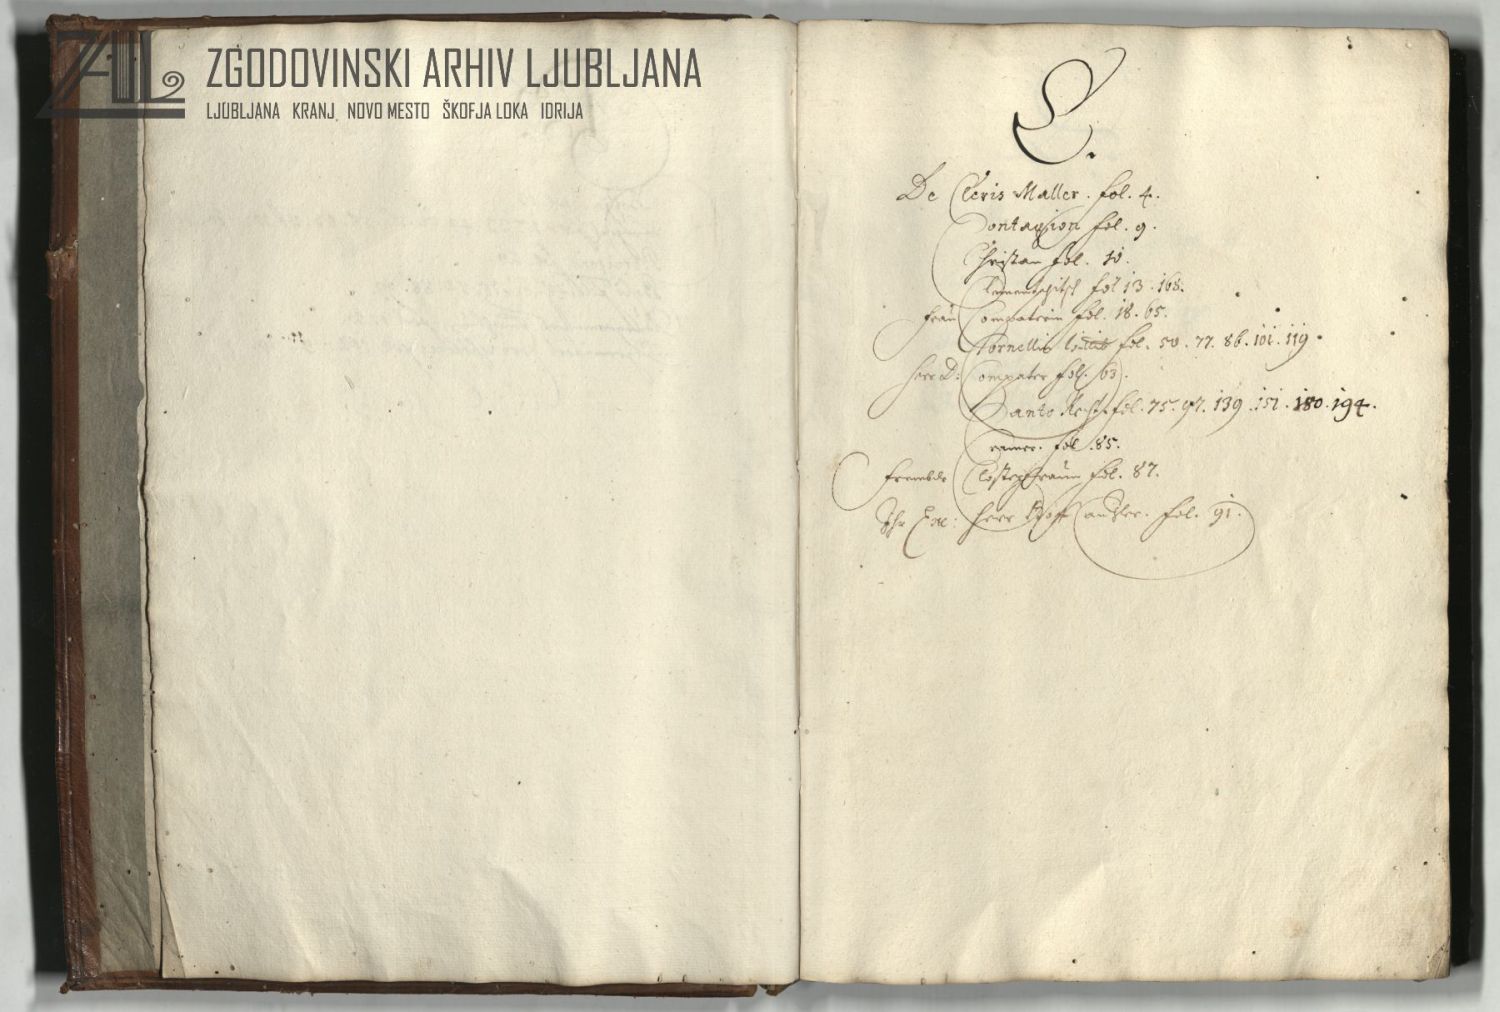 ZGODOVINSKI ARHIV LJUBLJANA
LJUBLJANA KRANJ NOVO MESTO ŠKOFJA LOKA IDRIJA
C.
De Cleris Maller. fol. 4.
Contagion fol. 9.
Christan fol. 10.
fol 13. 168.
Frau Compaterin fol. 18. 65.
Cornellio fol. 50. 77. 86. 101. 119.
Herr D: Compater fol. 63.
Canto fol. 75. 97. 139. 151. 180. 194.
Cramer. fol. 85.
frembde Closterfraun fol. 87.
Ihr Exc: Herr Hoff Canzler. fol. 91.